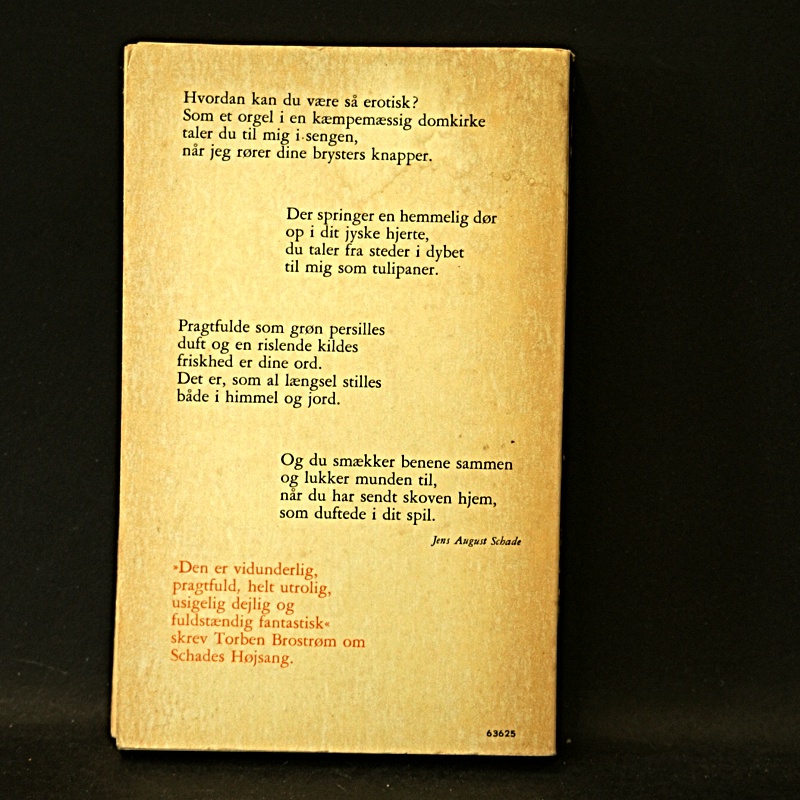 Hvordan kan du være så erotisk?
Som et orgel i en kæmpemæssig domkirke
taler du til mig i sengen,
når jeg rører dine brysters knapper.
Der springer en hemmelig dør
op i dit jyske hjerte,
du taler fra steder i dybet
til mig som tulipaner.
Pragtfulde som grøn persilles
duft og en rislende kildes
friskhed er dine ord.
Det er, som al længsel stilles
både i himmel og jord.
Og du smækker benene sammen
og lukker munden til,
når du har sendt skoven hjem,
som duftede i dit spil.
Jens August Schade
»Den er vidunderlig,
pragtfuld, helt utrolig,
usigelig dejlig og
fuldstændig fantastisk«
skrev Torben Brostrøm om
Schades Højsang.
63625